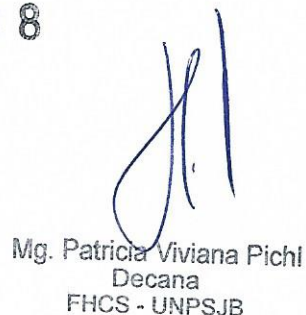 8
Mg. Patricia Viviana Pichl
Decana
FHCS - UNPSJB